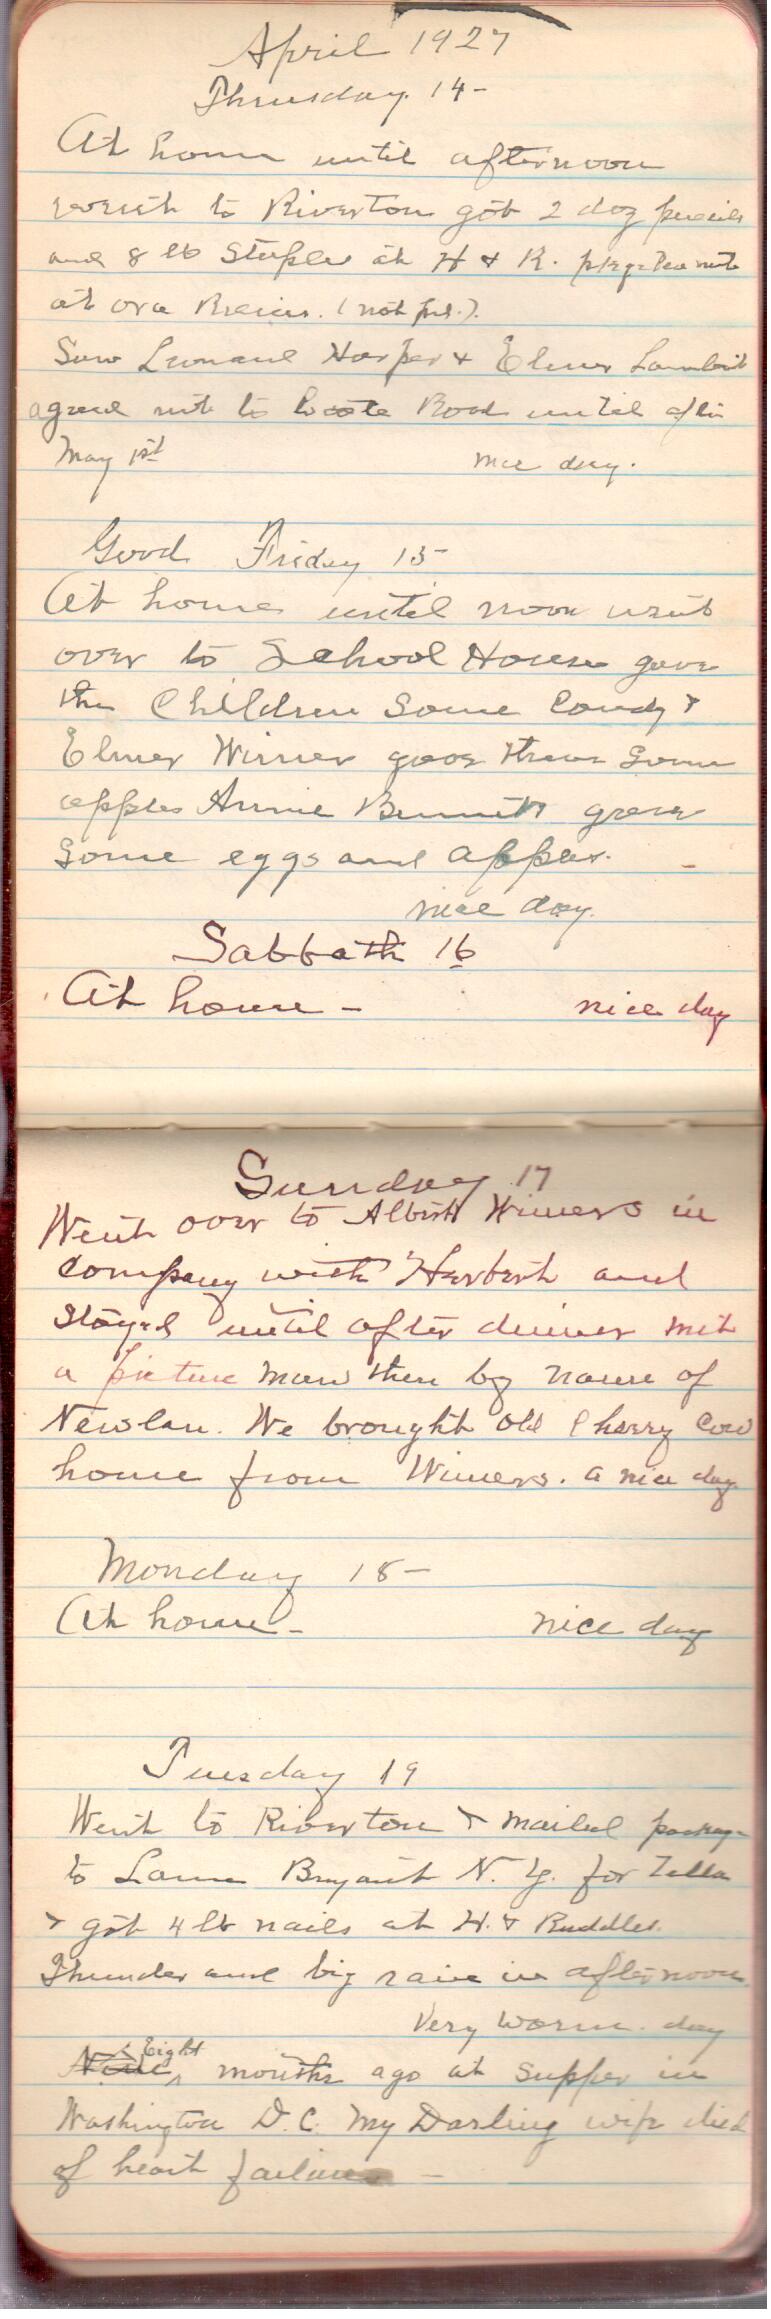 April 1927
Thursday 14-
At home until afternoon
went to Riverton got 2 doz pencils
and 8 lb Staples at H & R.
at ora (not pd.).
Saw Leonard Harper & Elmer Lambert
agreed not to locate Road until after
May 1st nice day.
Good Friday 15-
At home until noon went
over to School House gave
the Children Some Candy &
Elmer Wimer gave them Some
apples Annie Bennett gave
Some eggs and apples.
nice day.
Sabbath 16
At home - nice day
Sunday 17
Went over to Albert Wimers in
company with Herbert and
stayed until after dinner met
a picture man there by name of
Newlan. We brought old Cherry Cow
home from Wimers. a nice day
Monday 18-
At home - nice day
Tuesday 19
Went to Riverton & mailed package
to Lane Bryant N. Y. for Zella
& got 4 lb nails at H. & Ruddles.
Thunder and big rain in afternoon.
Very worm day
Nine Eight months ago at Supper in
Washington D.C. My Darling wife died
of heart failure -